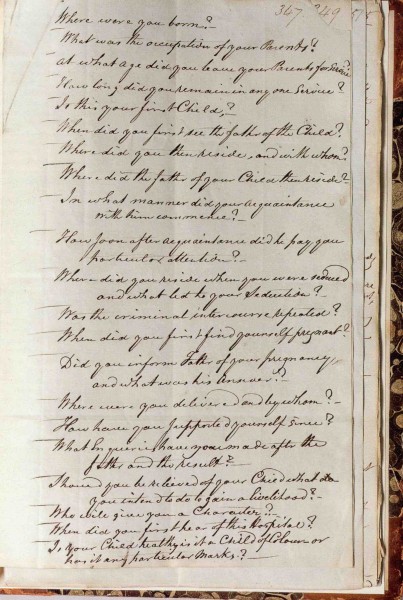 347 349
Where were you born?
What was the occupation of your Parents?
at what age did you leave your Parents for Service?
How long did you remain in any one Service?
Is this your first Child?
When did you first see the father of the Child?
Where did you then reside, and with whom?
Where did the father of your Child then reside?
In what manner did your acquaintance
with him commence?
How soon after acquaintance did he pay you
particular attention?
Where did you reside when you were seduced
and what led to your Seduction?
Was the criminal intercourse repeated?
When did you first find yourself pregnant?
Did you inform Father of your pregnancy,
and what was his Answer?
Where were you delivered and by whom?
How have you supported yourself since?
What Enquiries have you made after the
father and the result?
Should you be relieved of your Child what do
you intend to do to gain a livelihood?
Who will give you a Character?
When did you first hear of this Hospital?
Is your Child healthy is it a Child of Colour or
has it any particular Marks?